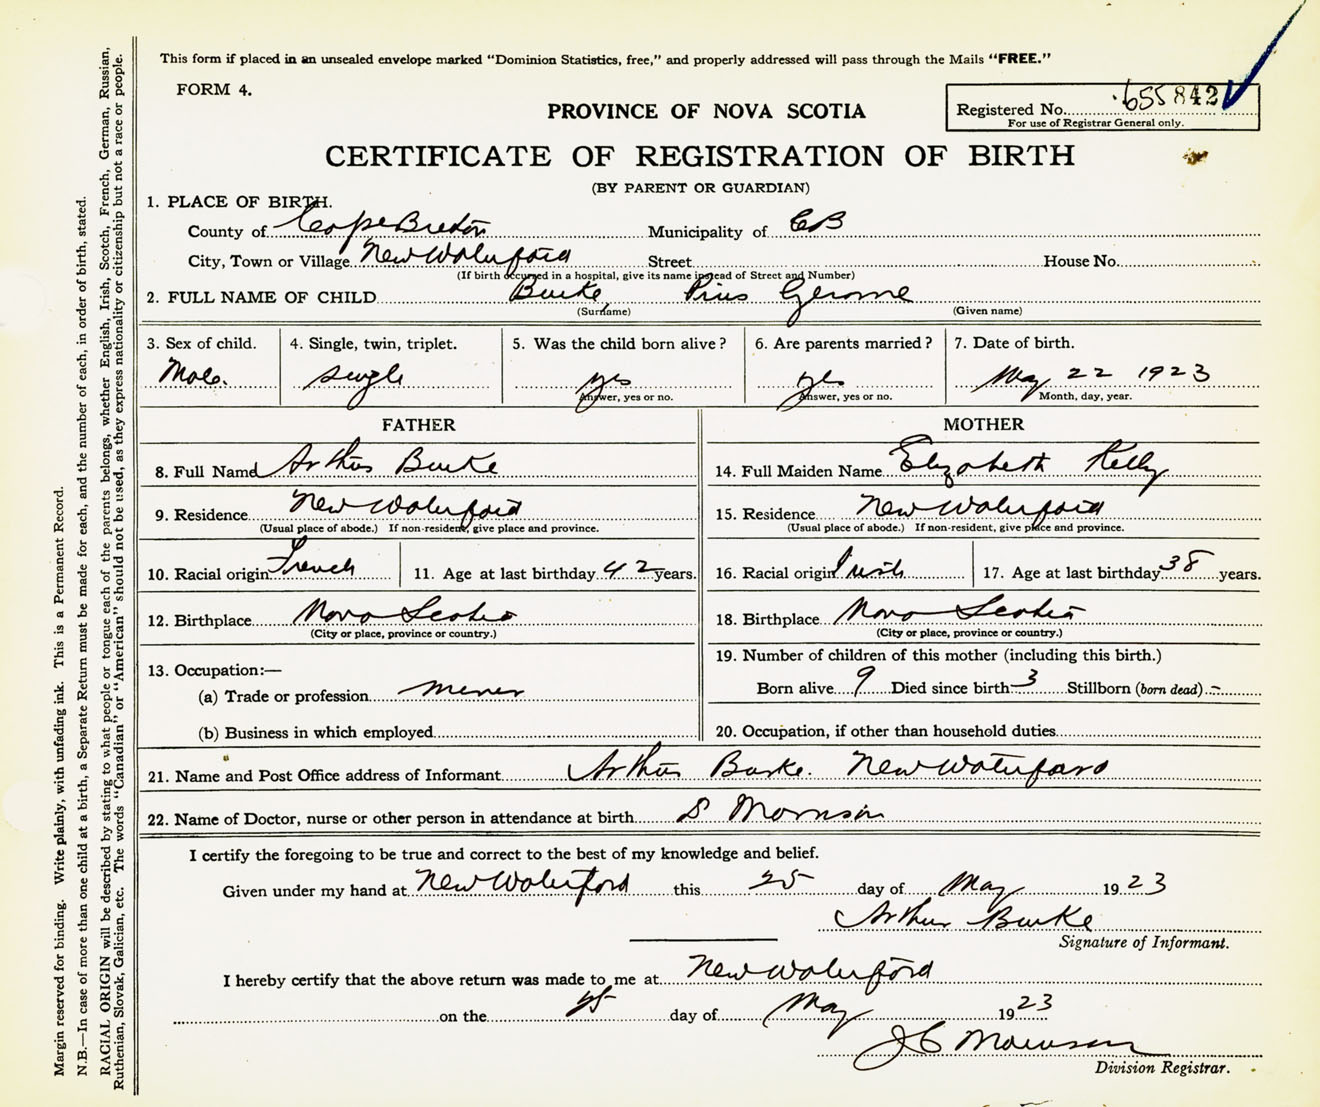 This form if placed in an unsealed envelope marked "Dominion Statistics, free," and properly addressed will pass through the Mails "FREE."
FORM 4.
Registered No. 655842
For use of Registrar General only.
PROVINCE OF NOVA SCOTIA
CERTIFICATE OF REGISTRATION OF BIRTH
(BY PARENT OR GUARDIAN)
1. PLACE OF BIRTH.
County of Cape Breton Municipality of CB
City, Town or Village New Waterford Street House No.
(If birth occurred in a hospital, give its name instead of Street and Number)
2. FULL NAME OF CHILD Burke, Pius Gerome
(Surname) (Given name)
3. Sex of child. 4. Single, twin, triplet. 5. Was the child born alive? 6. Are parents married? 7. Date of birth.
Male. single yes yes May 22 1923
Answer, yes or no. Answer, yes or no. Month, day, year.
FATHER
8. Full Name Arthur Burke
9. Residence New Waterford
(Usual place of abode.) If non-resident, give place and province.
10. Racial origin French 11. Age at last birthday 42 years.
12. Birthplace Nova Scotia
(City or place, province or country.)
13. Occupation:—
(a) Trade or profession miner
(b) Business in which employed
MOTHER
14. Full Maiden Name Elizabeth Kelly
15. Residence New Waterford
(Usual place of abode.) If non-resident, give place and province.
16. Racial origin Irish 17. Age at last birthday 38 years.
18. Birthplace Nova Scotia
(City or place, province or country.)
19. Number of children of this mother (including this birth.)
Born alive 9 Died since birth 3 Stillborn (born dead) -
20. Occupation, if other than household duties
21. Name and Post Office address of Informant Arthur Burke. New Waterford
22. Name of Doctor, nurse or other person in attendance at birth S Morrison
I certify the foregoing to be true and correct to the best of my knowledge and belief.
Given under my hand at New Waterford this 25 day of May 1923
Arthur Burke
Signature of Informant.
I hereby certify that the above return was made to me at New Waterford
on the 25 day of May 1923
J C Morrison
Division Registrar.
Margin reserved for binding. Write plainly, with unfading ink. This is a Permanent Record.
N.B.—In case of more than one child at a birth, a Separate Return must be made for each, and the number of each, in order of birth, stated.
RACIAL ORIGIN will be described by stating to what people or tongue each of the parents belongs, whether English, Irish, Scotch, French, German, Russian,
Ruthenian, Slovak, Galician, etc. The words "Canadian" or "American" should not be used, as they express nationality or citizenship but not a race or people.